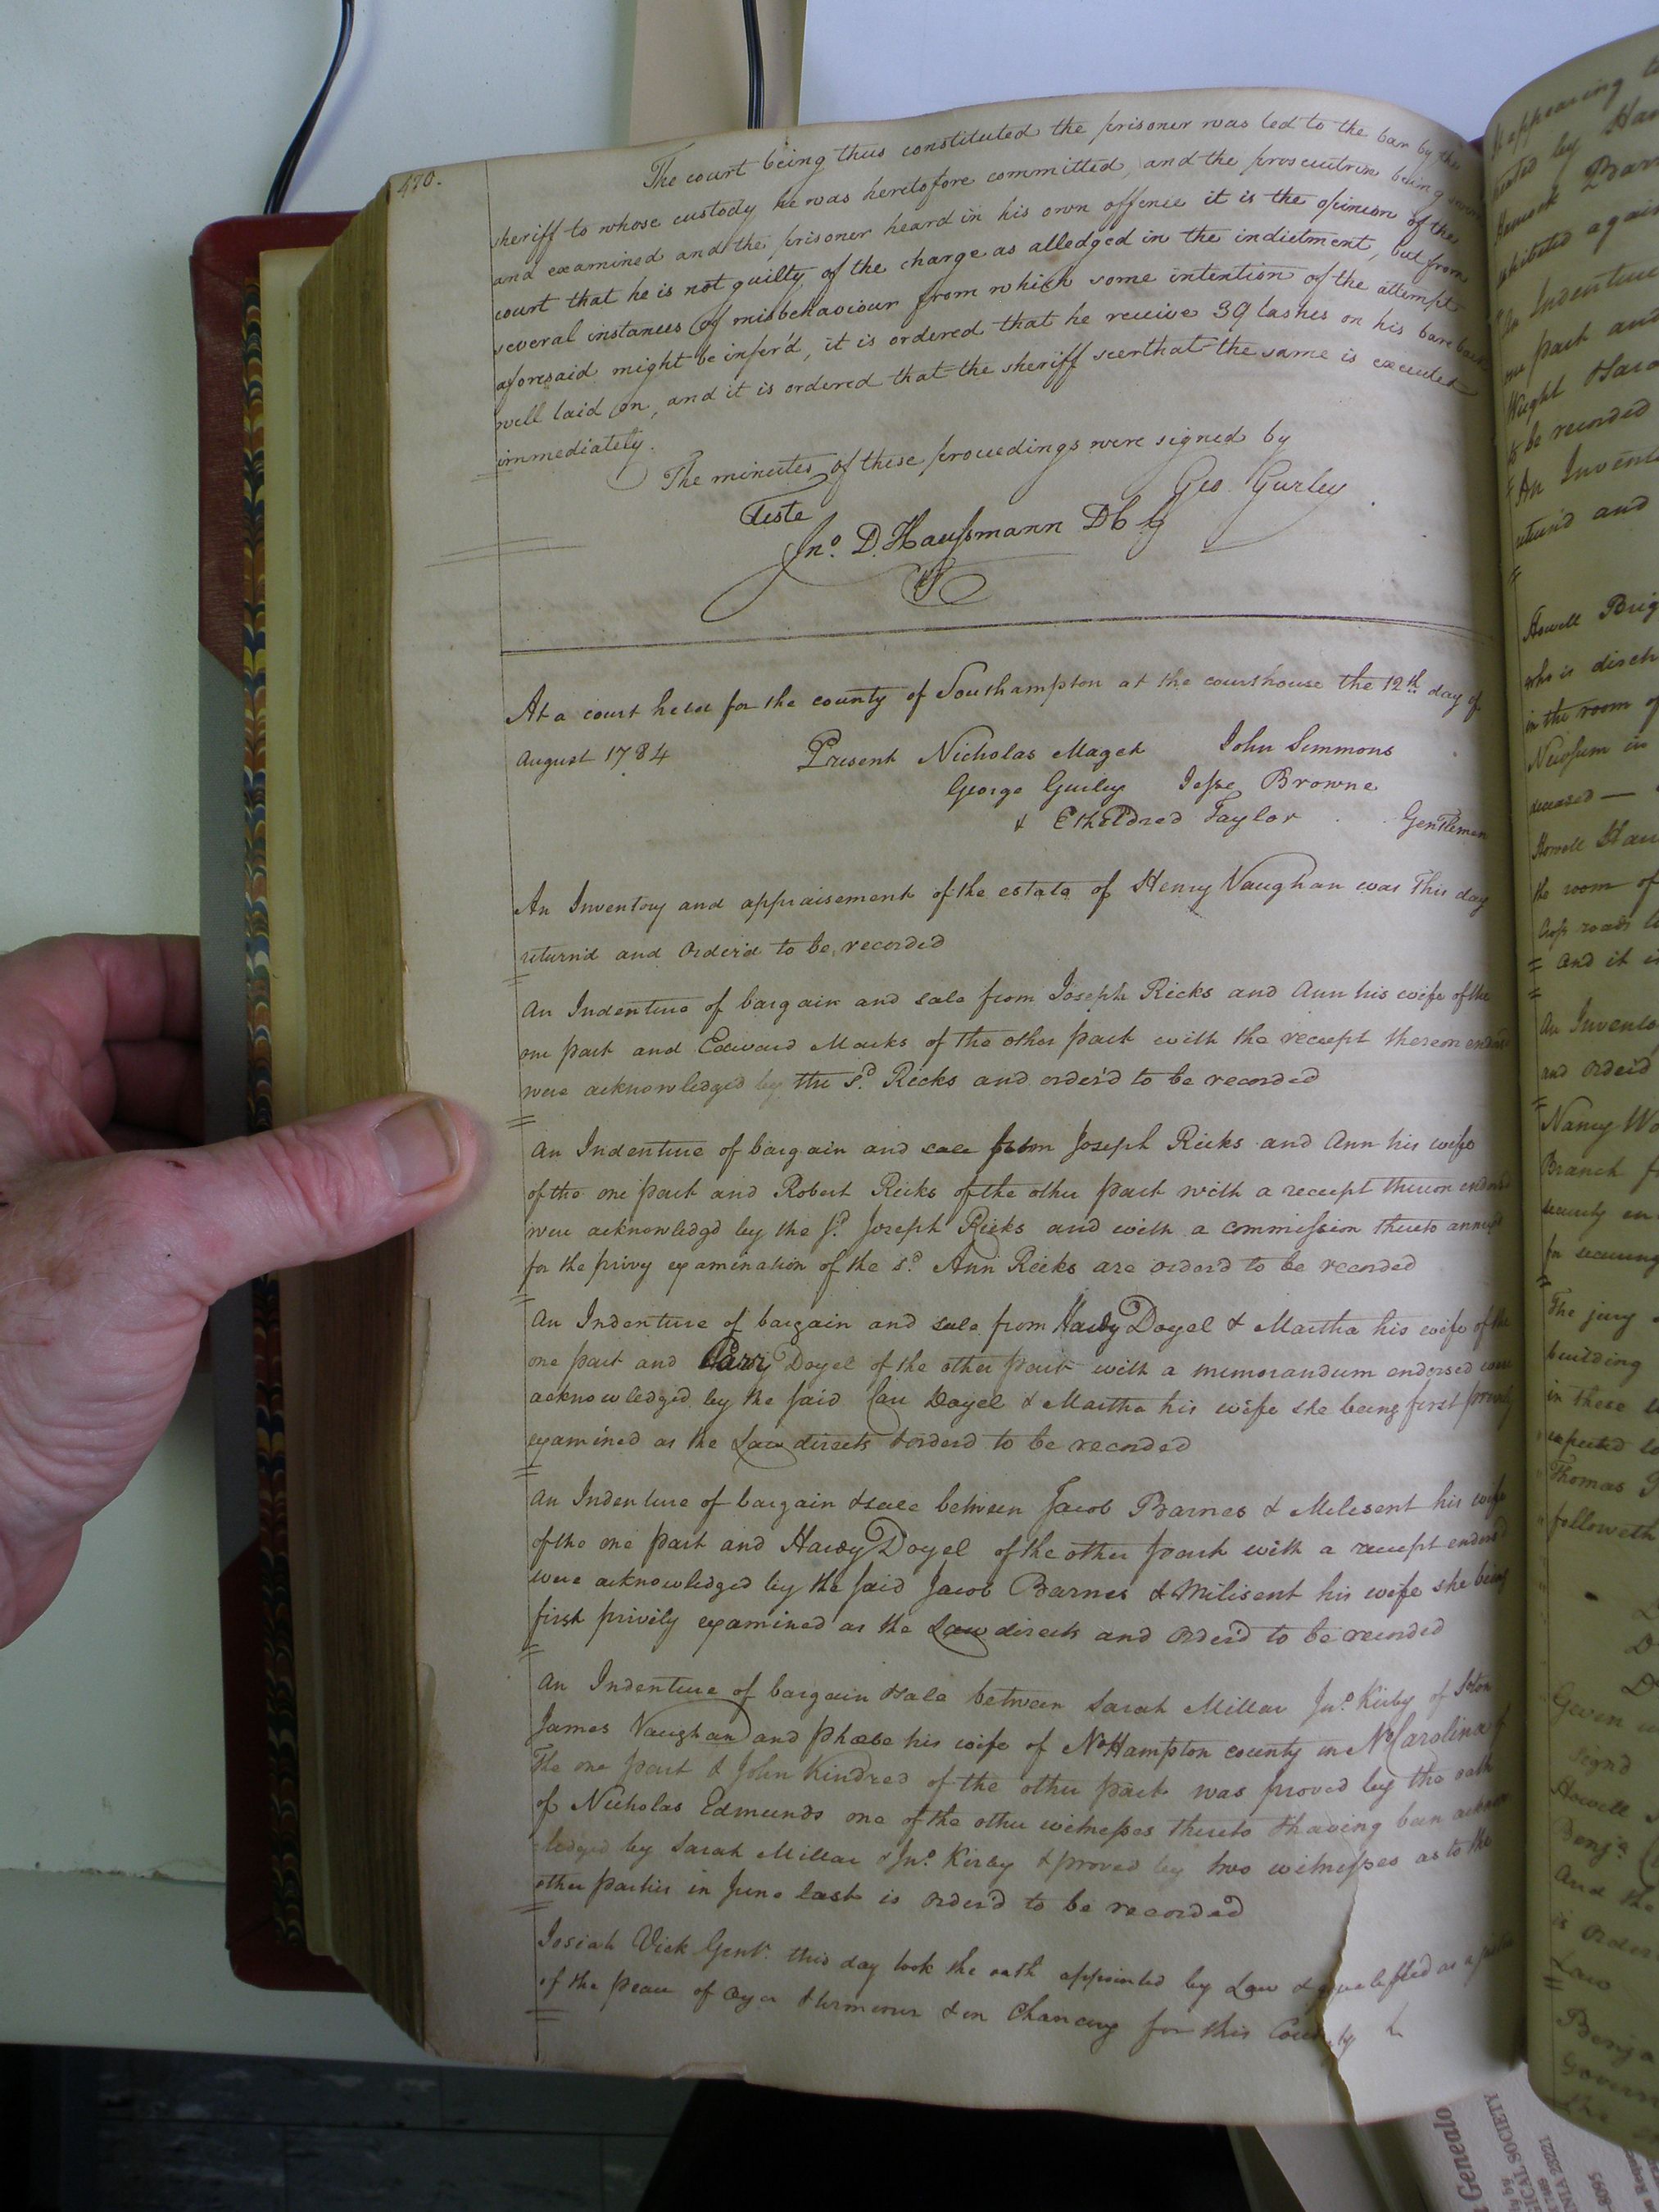 470.
The court being thus constituted the prisoner was led to the bar by the
sheriff to whose custody he was heretofore committed, and the prosecutrix being sworn
and examined and the prisoner heard in his own offence it is the opinion of the
court that he is not guilty of the charge as alledged in the indictment, but from
several instances of misbehaviour from which some intention of the attempt
aforesaid might be infer'd, it is ordered that he receive 39 lashes on his bare back
well laid on, and it is ordered that the sheriff see that the same is executed
immediately.
The minutes of these proceedings were signed by
Geo. Gurley
Teste
Jno. D. Haussmann D C
At a court held for the county of Southampton at the courthouse the 12th day of
August 1784 Present Nicholas Maget John Simmons
George Gurley Jesse Browne
& Etheldred Taylor Gentlemen
An Inventory and appraisement of the estate of Henry Vaughan was This day
return'd and Order'd to be recorded
An Indenture of bargain and sale from Joseph Ricks and Ann his wife of the
one part and Edward Marks of the other part with the receipt thereon endors'd
were acknowledged by the sd. Ricks and order'd to be recorded
An Indenture of bargain and sale from Joseph Ricks and Ann his wife
of the one part and Robert Ricks of the other part with a receipt thereon endors'd
were acknowledgd by the sd. Joseph Ricks and with a commission thereto annex'd
for the privy examination of the sd. Ann Ricks are order'd to be recorded
An Indenture of bargain and sale from Hardy Doyel & Martha his wife of the
one part and Doyel of the other part with a memorandum endorsed were
acknowledged by the said Doyel & Martha his wife she being first privily
examined as the Law directs & order'd to be recorded
An Indenture of bargain & sale between Jacob Barnes & Milesent his wife
of the one part and Hardy Doyel of the other part with a receipt endors'd
were acknowledged by the said Jacob Barnes & Milisent his wife she being
first privily examined as the Law directs and Order'd to be recorded
An Indenture of bargain & sale between Sarah Millar Jno. Kirby of Soton
James Vaughan and Phœbe his wife of No Hampton county in No Carolina of
The one part & John Kindred of the other part was proved by the oath
of Nicholas Edmunds one of the other witnesses thereto & having been acknow
ledged by Sarah Millar & Jno. Kirby & proved by two witnesses as to the
other parties in June last is order'd to be recorded
Josiah Vick Gent. this day took the oath appointed by Law & qualified as a justice
of the peace of Oyer & terminer & in Chancery for this County
It appearing
Har
Bar
against
An Indenture
one part and
Wright
to be recorded
An Invent
return'd and
Howell Brig
who is disch
in the room of
Newsum in
deceased —
Howell
the room of
Cross roads
and it is
An Invento
and order'd
Nancy
Branch
security
for securing
The jury
building
in these
expected
Thomas
followeth
Given
Howell
Benja
And the
is order
Law
Benja
Govern
the
Genealo
ICAL SOCIETY
NIA 23221
8095